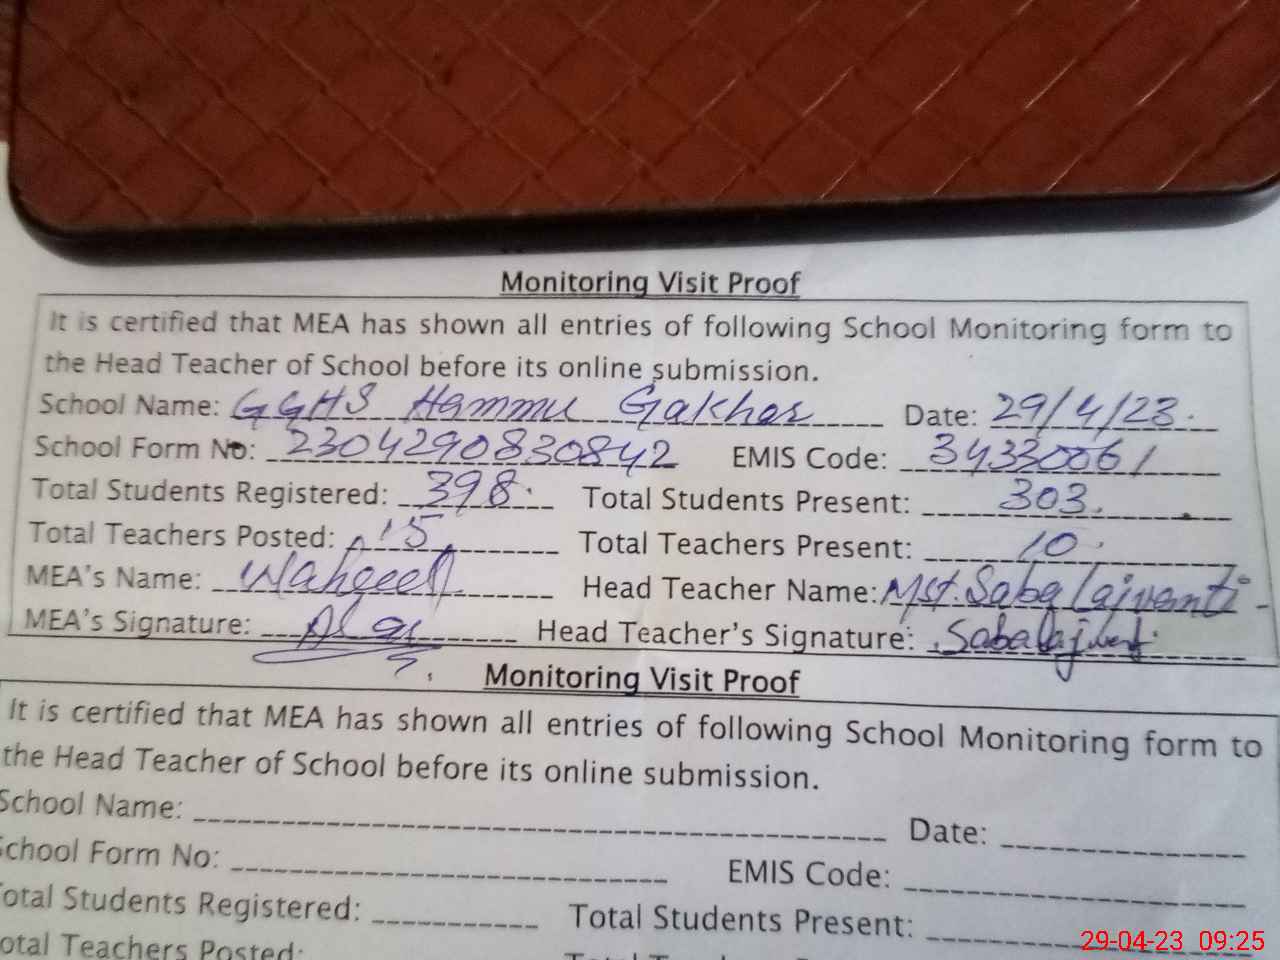 Monitoring Visit Proof
It is certified that MEA has shown all entries of following School Monitoring form to
the Head Teacher of School before its online submission.
School Name: GGHS Hammu Gakhar Date: 29/4/23.
School Form No: 2304290830842 EMIS Code: 34330061
Total Students Registered: 398. Total Students Present: 303.
Total Teachers Posted: 15 Total Teachers Present: 10.
MEA's Name: Waheed Head Teacher Name: Mst. Saba lajwanti
MEA's Signature: Head Teacher's Signature: Sabalajwanti
Monitoring Visit Proof
It is certified that MEA has shown all entries of following School Monitoring form to
the Head Teacher of School before its online submission.
School Name: Date:
School Form No: EMIS Code:
Total Students Registered: Total Students Present:
Total Teachers Posted:
29-04-23 09:25